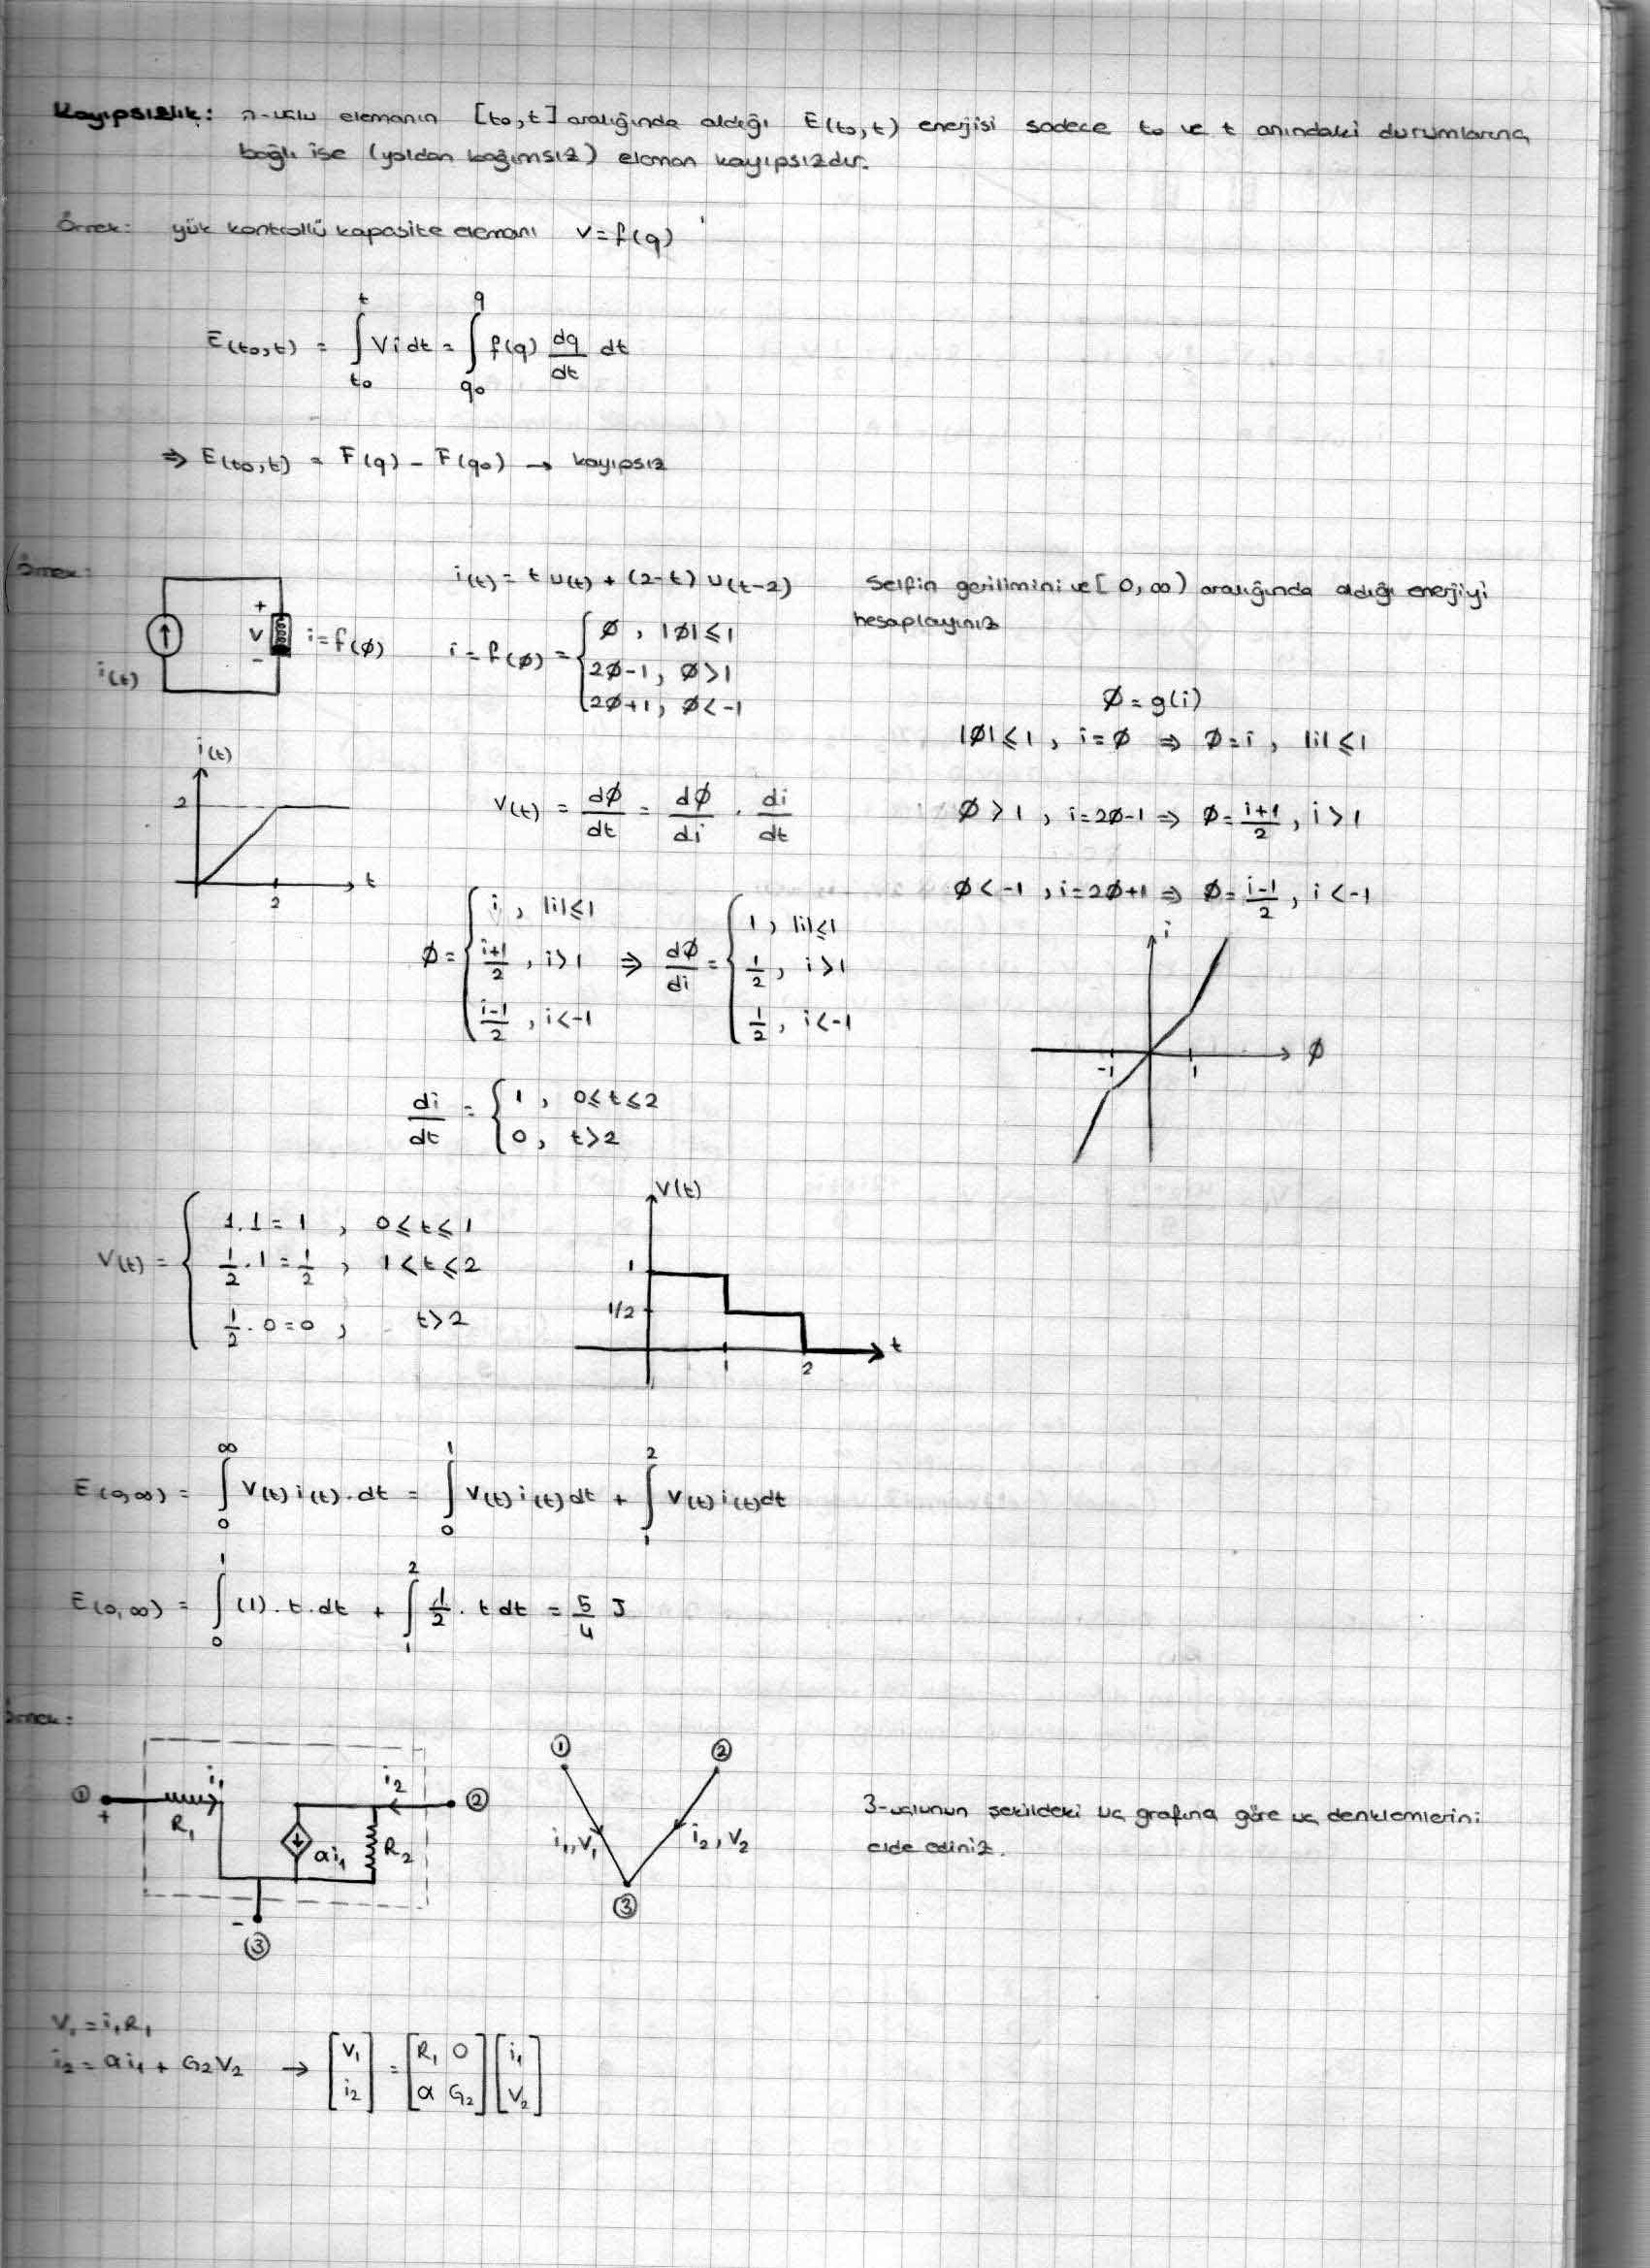 Kayıpsızlık: n-uçlu elemanın [t₀,t] aralığında aldığı E(t₀,t) enerjisi sadece t₀ ve t anındaki durumlarına
bağlı ise (yoldan bağımsız) eleman kayıpsızdır.
Örnek: yük kontrollü kapasite elemanı v=f(q)
E(t₀,t) = ∫_{t₀}^{t} V i dt = ∫_{q₀}^{q} f(q) dq/dt dt
⇒ E(t₀,t) = F(q) - F(q₀) → kayıpsız
Örnek:
i(t) = t u(t) + (2-t) u(t-2)
Selfin gerilimini ve [0,∞) aralığında aldığı enerjiyi
hesaplayınız
+
V
-
i=f(Ø)
i(t)
i = f(Ø) = { Ø, |Ø|≤1
2Ø-1, Ø>1
2Ø+1, Ø<-1
Ø=g(i)
|Ø|≤1, i=Ø ⇒ Ø=i, |i|≤1
i(t)
2
t
2
V(t) = dØ/dt = dØ/di . di/dt
Ø>1, i=2Ø-1 ⇒ Ø=(i+1)/2, i>1
Ø<-1, i=2Ø+1 ⇒ Ø=(i-1)/2, i<-1
Ø = { i, |i|≤1
(i+1)/2, i>1
(i-1)/2, i<-1
⇒ dØ/di = { 1, |i|≤1
1/2, i>1
1/2, i<-1
i
Ø
-1 1
di/dt = { 1, 0≤t≤2
0, t>2
V(t) = { 1.1=1, 0≤t≤1
1/2.1=1/2, 1<t≤2
1/2.0=0, t>2
V(t)
1
1/2
t
1 2
E(0,∞) = ∫_{0}^{∞} V(t) i(t).dt = ∫_{0}^{1} V(t) i(t) dt + ∫_{1}^{2} V(t) i(t) dt
E(0,∞) = ∫_{0}^{1} (1).t.dt + ∫_{1}^{2} 1/2 . t dt = 5/4 J
Örnek:
① + R₁ i₁ αi₁ R₂ i₂ ②
- ③
① ②
i₁,V₁ i₂,V₂
③
3-uçlunun şekildeki uç grafına göre uç denklemlerini
elde ediniz.
V₁=i₁R₁
i₂=αi₁ + G₂V₂ → [V₁ i₂] = [R₁ 0 α G₂] [i₁ V₂]